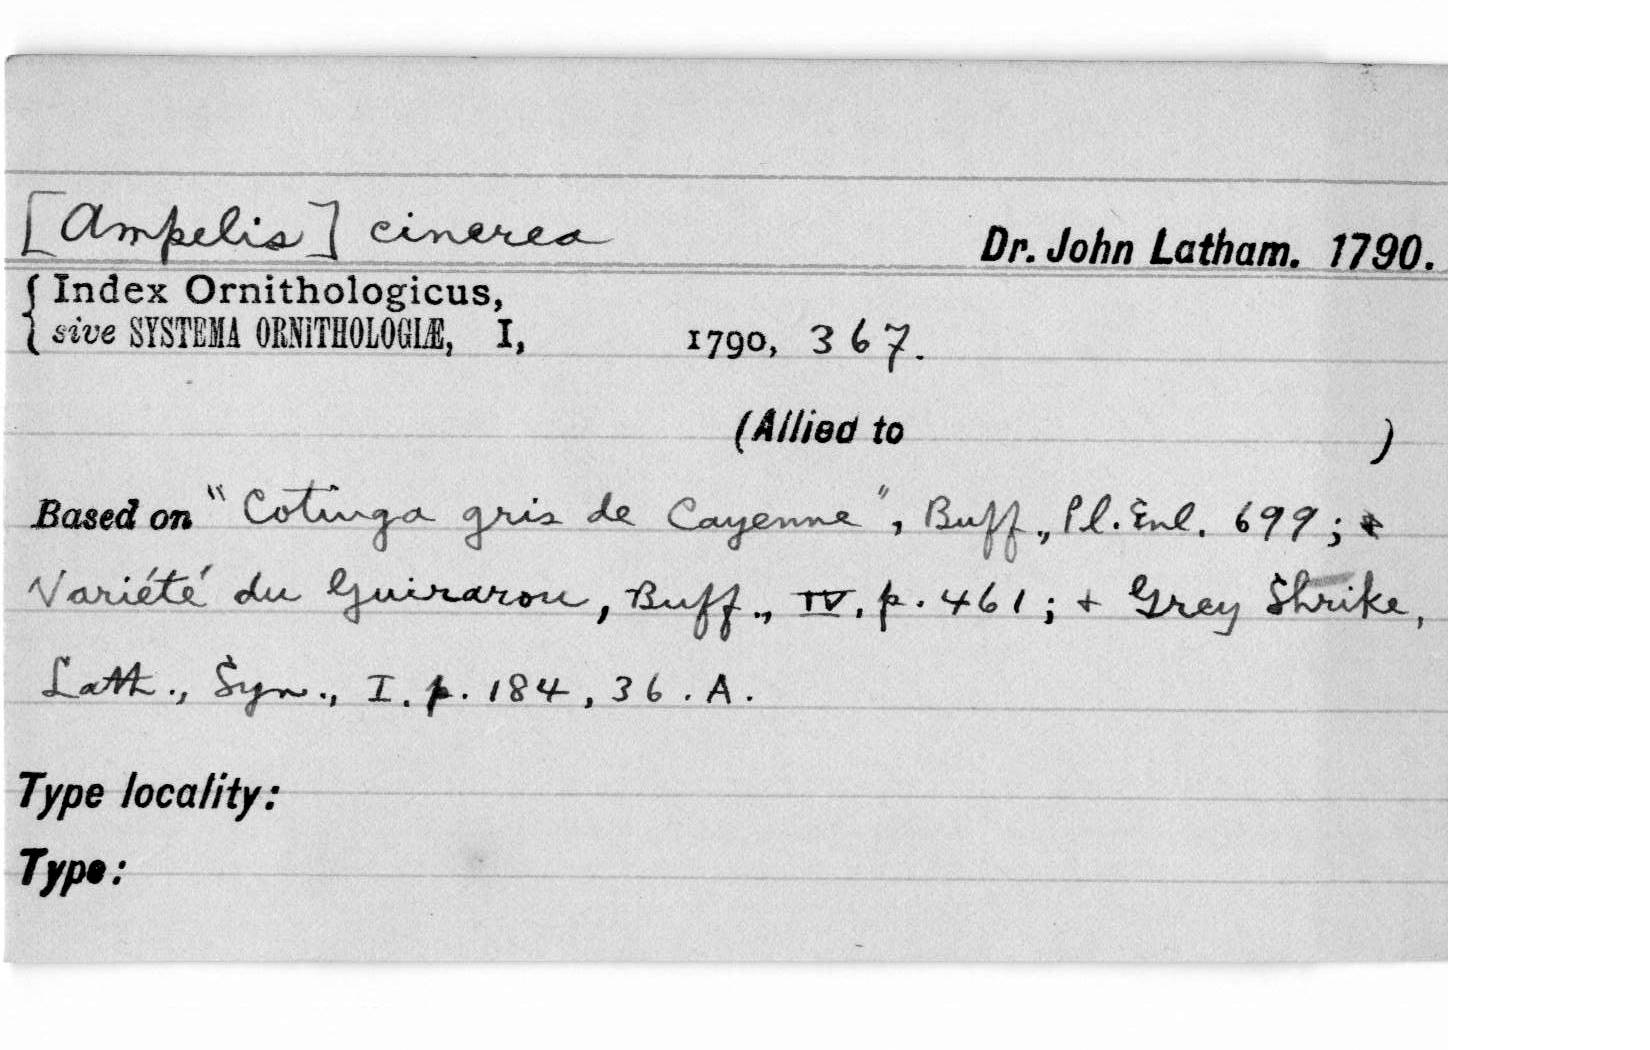 [Ampelis] cinerea Dr. John Latham. 1790.
Index Ornithologicus,
sive SYSTEMA ORNITHOLOGIÆ, I, 1790, 367.
(Allied to )
Based on "Cotinga gris de Cayenne", Buff., Pl. Enl. 699;
Variété du Guirarou, Buff., IV. p. 461; + Grey Shrike,
Lath., Syn., I. p. 184, 36. A.
Type locality:
Type: